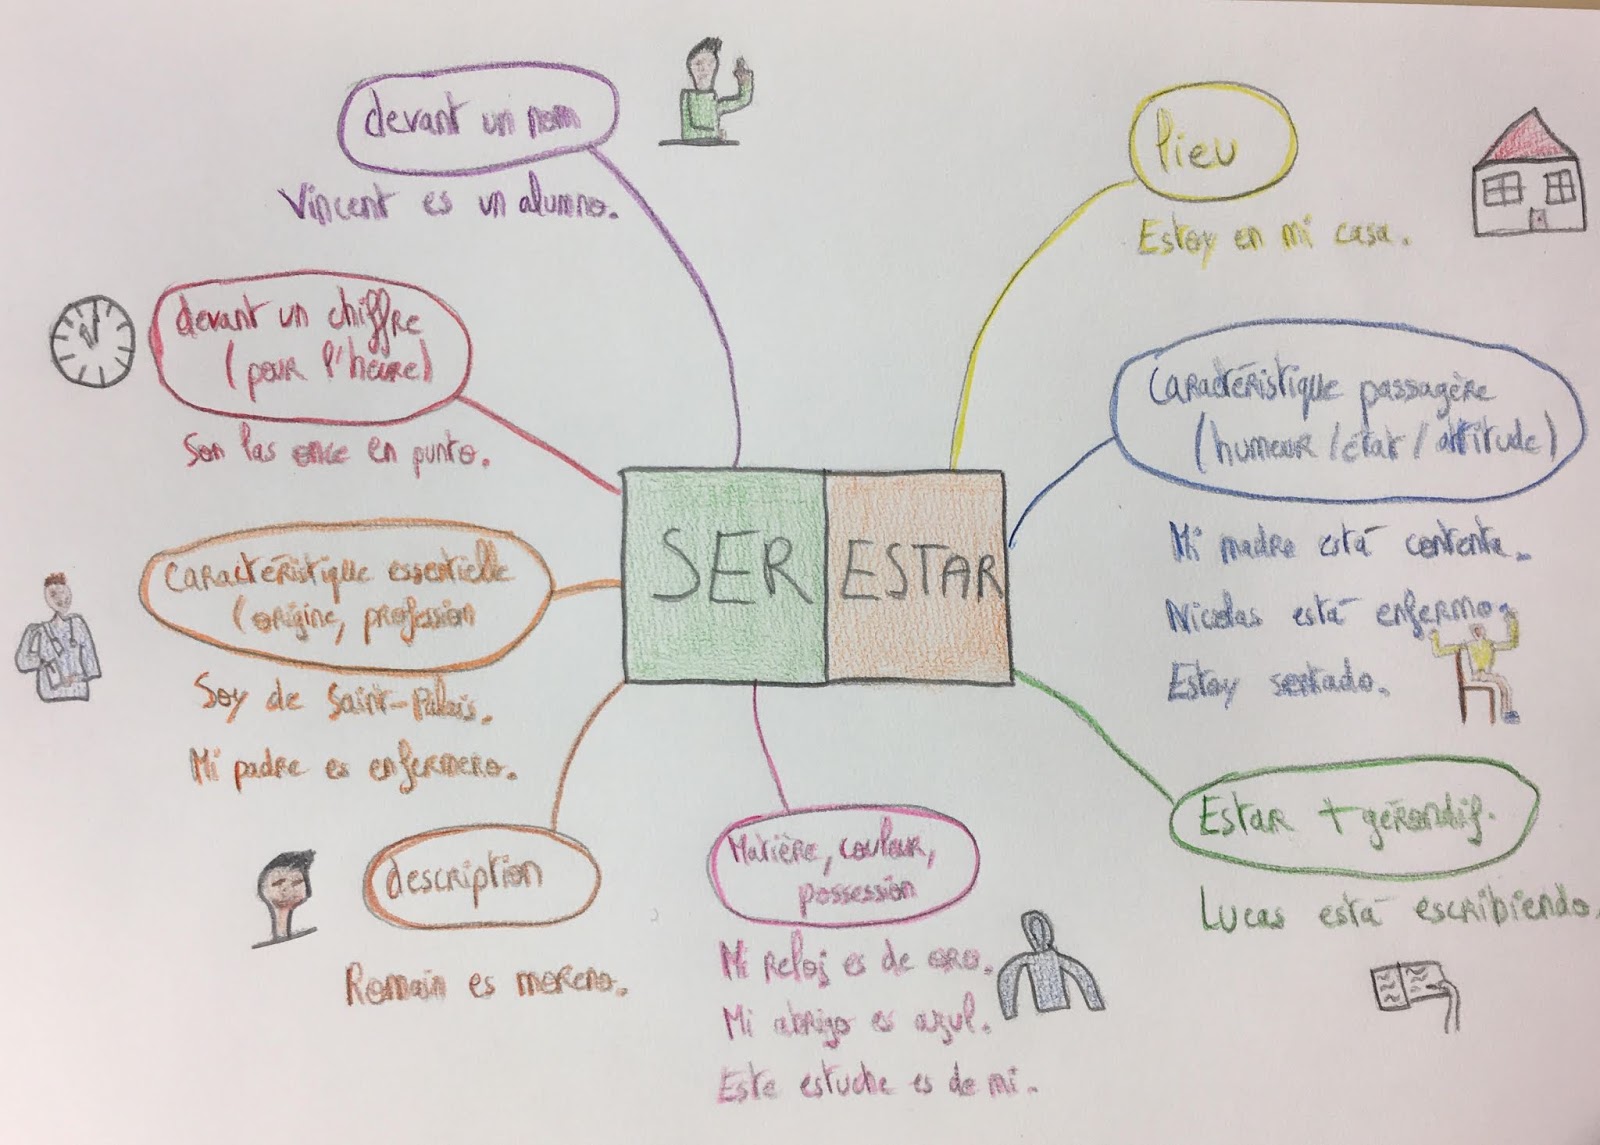 devant un nom
Vincent es un alumno.
devant un chiffre
(pour l'heure)
Son las once en punto.
caractéristique essentielle
(origine, profession
Soy de Saint-Palais.
Mi padre es enfermero.
description
Romain es moreno.
SER
ESTAR
Matière, couleur,
possession
Mi reloj es de oro.
Mi abrigo es azul.
Este estuche es de mi.
lieu
Estoy en mi casa.
caractéristique passagère
(humeur/état/attitude)
Mi madre está contenta.
Nicolas está enfermo.
Estoy sentado.
Estar + gérondif.
Lucas está escribiendo.